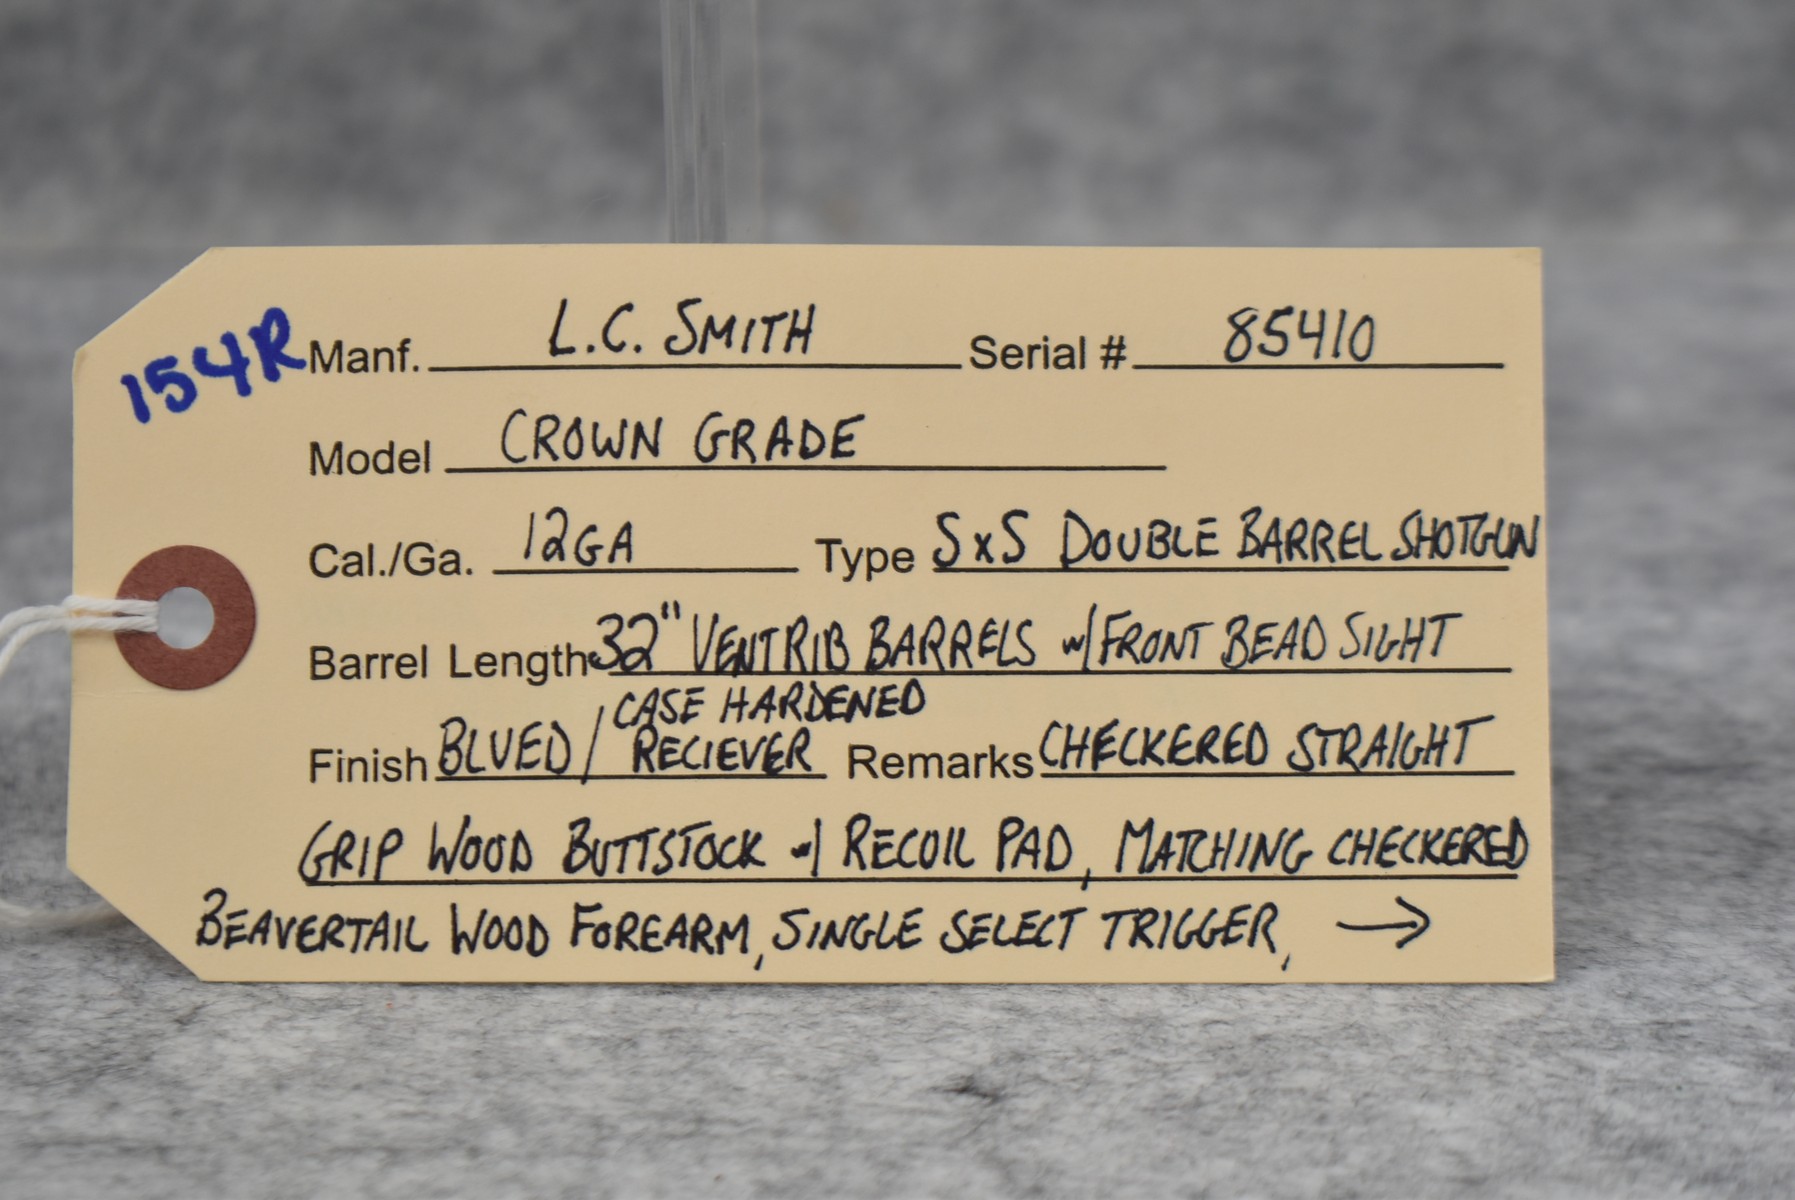 154R
Manf. L.C. SMITH Serial # 85410
Model CROWN GRADE
Cal./Ga. 12GA Type SxS DOUBLE BARREL SHOTGUN
Barrel Length 32" VENT RIB BARRELS w/ FRONT BEAD SIGHT
Finish BLUED / CASE HARDENED RECIEVER Remarks CHECKERED STRAIGHT
GRIP WOOD BUTTSTOCK w/ RECOIL PAD, MATCHING CHECKERED
BEAVERTAIL WOOD FOREARM, SINGLE SELECT TRIGGER, →